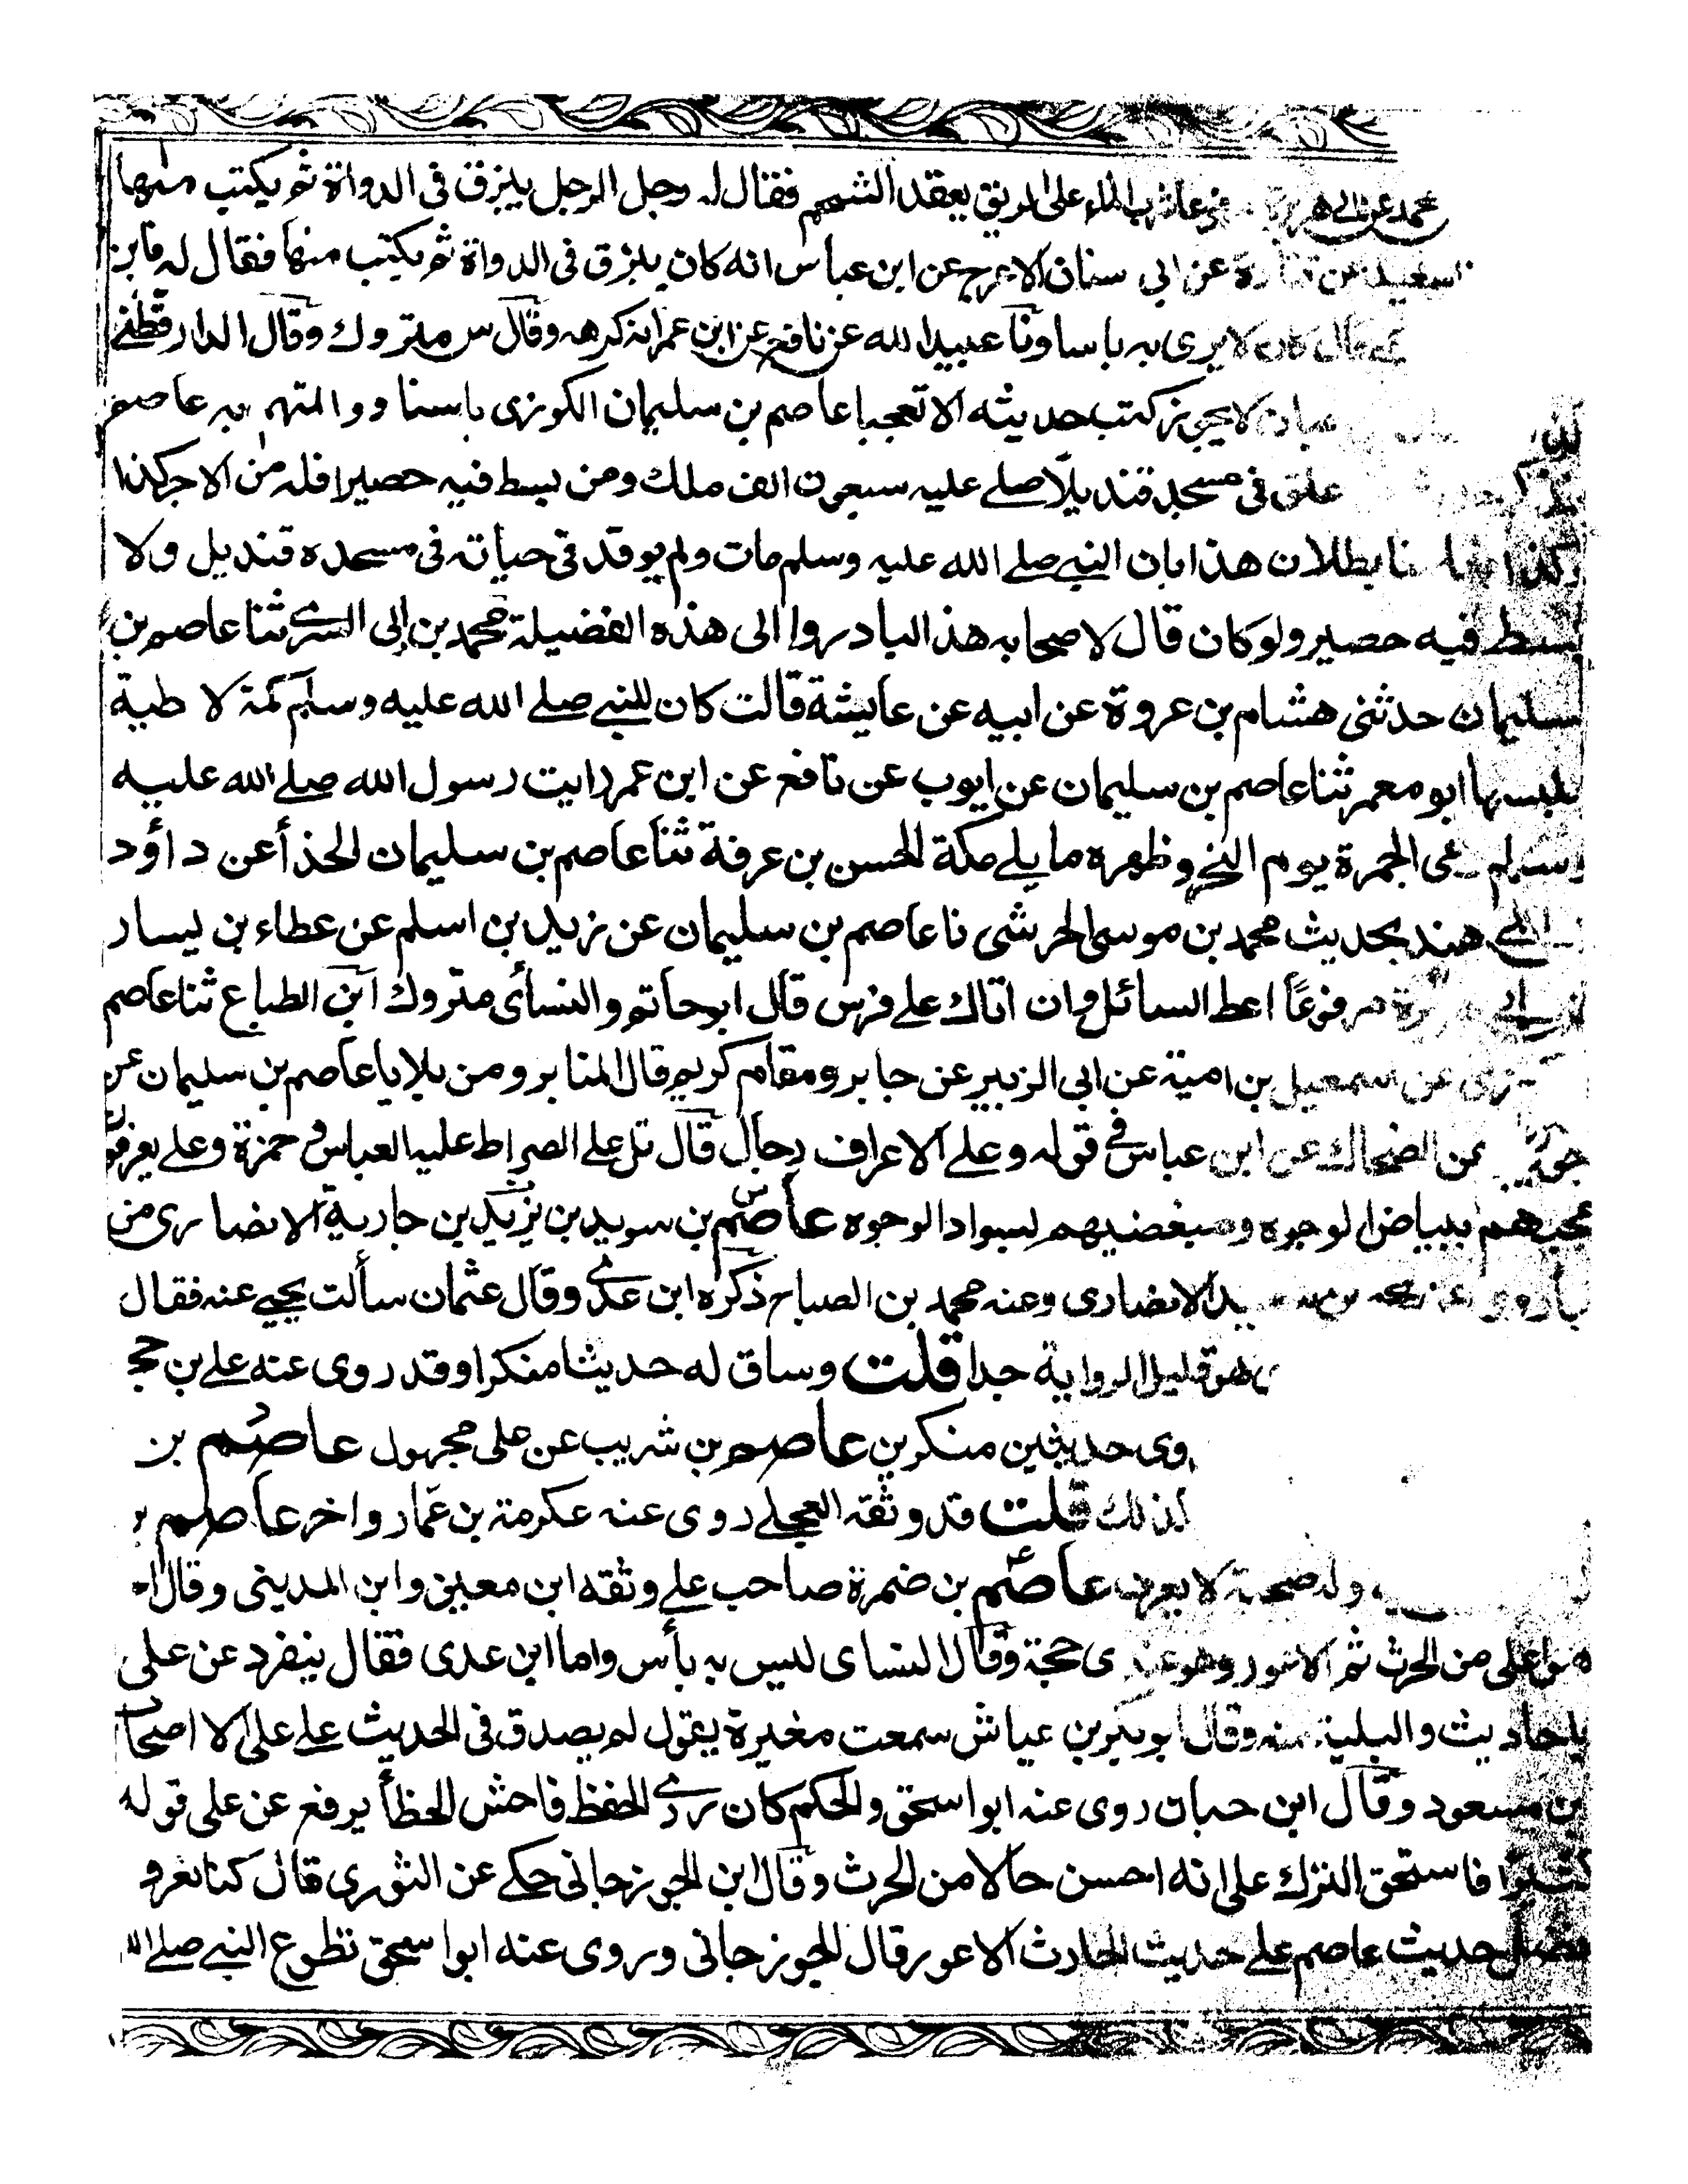 محمد عن ابي هر شرب الماء على الريق يعقد الشحم فقال له رجل الرجل يبزق فى الدواة ثم يكتب منها
سعيد عن قتادة عن ابي سنان الاعرج عن ابن عباس انه كان يبزق فى الدواة ثم يكتب منها فقال له فابن
قال كان لا يرى به باسا ونا عبيد الله عن نافع عن ابن عمر انه كرهه وقال س متروك وقال الدارقطنى
حبان لا يجوز كتب حديثه الا تعجبا عاصم بن سليمان الكوزى باسناد والمتهم به عاصم
علق فى مسجد قنديلا صلے عليه سبعون الف ملك ومن بسط فيه حصيرا فله من الاجر كذا
وكذا بطلان هذا بان النبي صلے الله عليه وسلم مات ولم يوقد فى حياته فى مسجده قنديل ولا
بسط فيه حصير ولو كان قال لاصحابه هذا لبادروا الى هذه الفضيلة محمد بن ابى السرى ثنا عاصم بن
سليمان حدثنى هشام بن عروة عن ابيه عن عايشة قالت كان للنبي صلے الله عليه وسلم كمة لا طية
يلبسها ابو معمر ثنا عاصم بن سليمان عن ايوب عن نافع عن ابن عمر رايت رسول الله صلے الله عليه
وسلم رمى الجمرة يوم النحر وظهره مما يلے مكة الحسن بن عرفة ثنا عاصم بن سليمان الحذأ عن داؤد
ابي هند بحديث محمد بن موسى الحرشى نا عاصم بن سليمان عن زيد بن اسلم عن عطاء بن يسار
عن ابي هريرة مرفوعًا اعط السائل وان اتاك علے فرس قال ابو حاتم والنسأى متروك ابن الطباع ثنا عاصم
عن اسمعيل بن امية عن ابى الزبير عن جابر ومقام كريم قال المنابر ومن بلايا عاصم بن سليمان عن
جويبر عن الضحاك عن ابن عباس فى قوله وعلے الاعراف رجال قال تل على الصراط عليه العباس و حمزة وعلے يعرفون
محبيهم ببياض الوجوه ومبغضيهم بسواد الوجوه عاصم بن سويد بن يزيد بن جارية الانصارى من
الانصارى وعنه محمد بن الصباح ذكره ابن عدى وقال عثمان سألت يحيى عنه فقال
هو قليل الرواية جدا قلت وساق له حديثا منكرا وقد روى عنه على بن حج
وى حديثين منكرين عاصم بن شريب عن على مجهول عاصم بن
لذلك قلت قد وثقه العجلے روى عنه عكرمة بن عمار واخر عاصم
وله صحبة لا يعرف عاصم بن ضمرة صاحب علے وثقه ابن معين وابن المدينى وقال
هو اعلى من الحرث ثم الاعور وهو عندى حجة وقال النساى ليس به بأس واما ابن عدى فقال ينفرد عن على
باحاديث والبلية منه وقال ابو بكر بن عياش سمعت مغيرة يقول لم يصدق فى الحديث علے على الا اصحاب
بن مسعود وقال ابن حبان روى عنه ابو اسحق والحكم كان ردى الحفظ فاحش الخطأ يرفع عن على قوله
كثيرا فاستحق الترك على انه احسن حالا من الحرث وقال ابن الجوزجانى حكے عن الثورى قال كنا نعرف
فضل حديث عاصم علے حديث الحارث الاعور قال الجوزجانى وروى عنه ابو اسحق تطوع النبي صلے الله